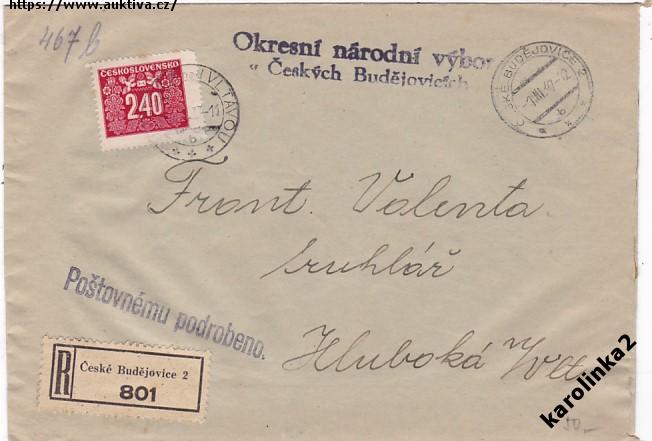 https://www.auktiva.cz/
467 b
Okresní národní výbor
v Českých Budějovicích
ČESKOSLOVENSKO
2.40
VLTAVOU
ČESKÉ BUDĚJOVICE 2
b
Frant. Valenta
truhlář
Hluboká n/Vlt.
Poštovnému podrobeno.
R
České Budějovice 2
801
karolinka2
50,-